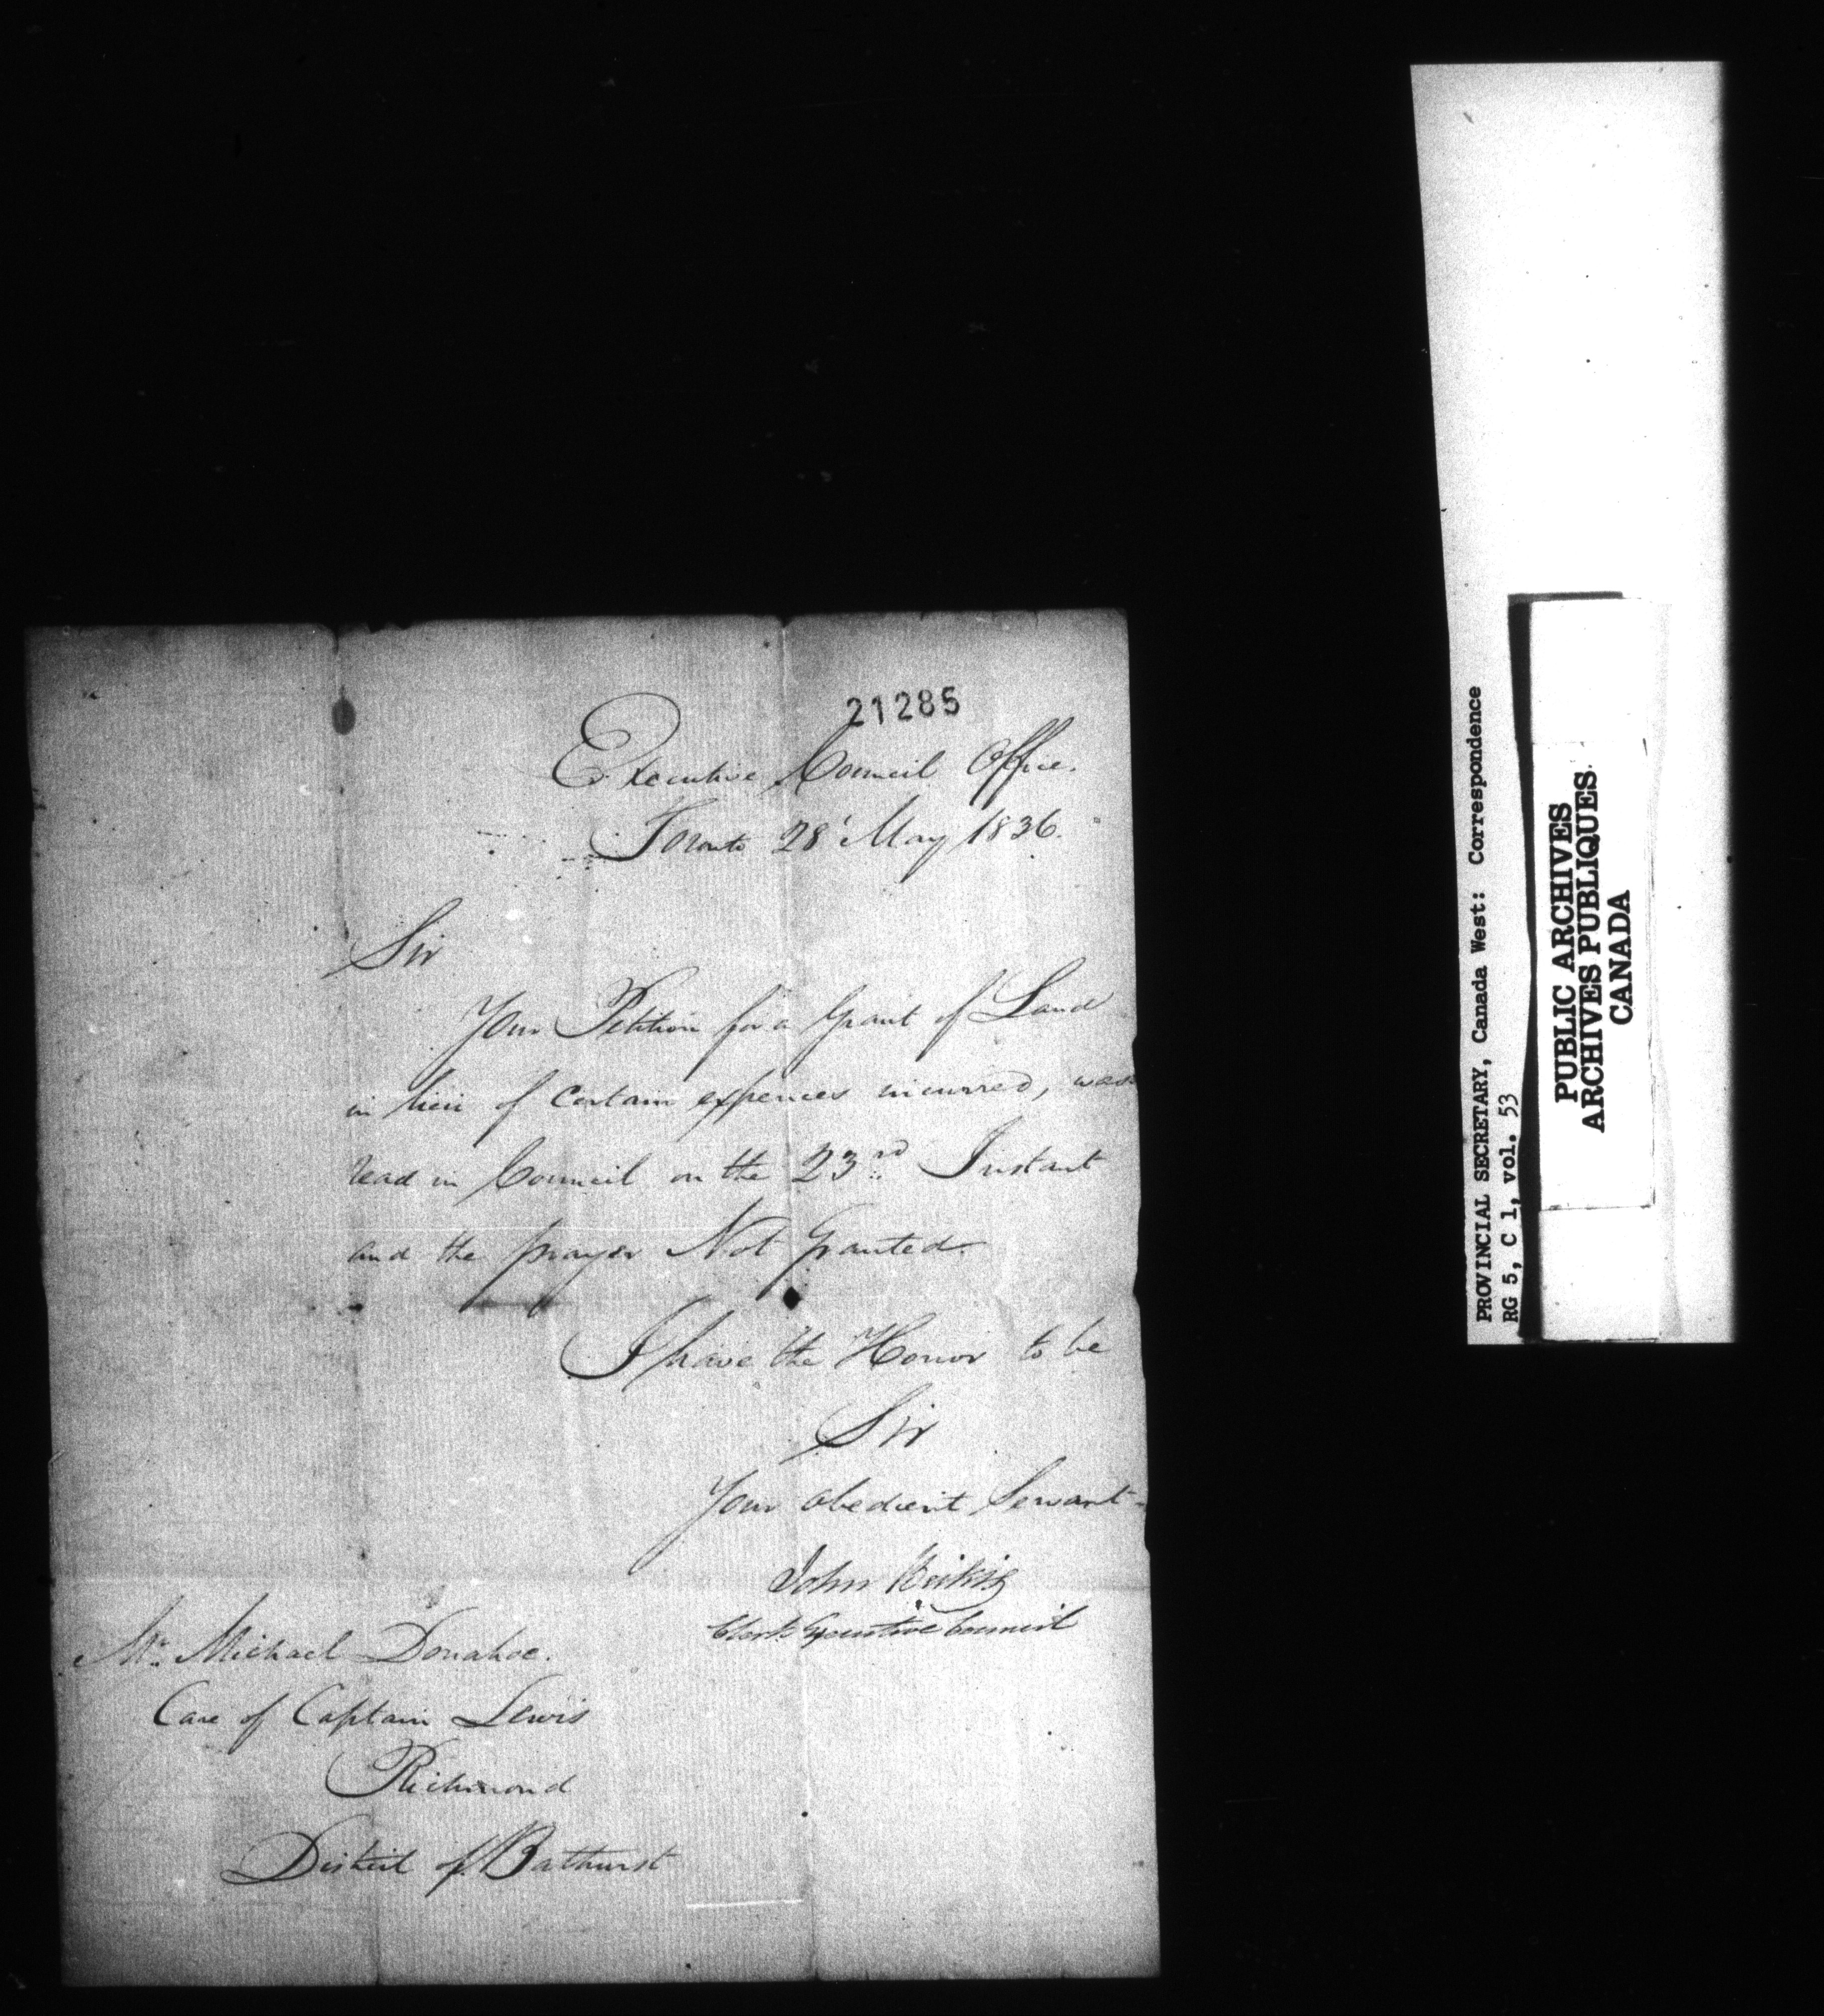 21285
Executive Council Office.
Toronto 28' May 1836.
Sir
Your Petition for a Grant of Land
in lieu of Certain expences incurred, was
read in Council on the 23rd Instant
and the prayer Not Granted.
I have the Honor to be
Sir
Your obedient Servant
John Beikie
Clerk Executive Council
Mr. Michael Donahoe.
Care of Captain Lewis
Richmond
District of Bathurst
PROVINCIAL SECRETARY, Canada West: Correspondence
RG 5, C 1, vol. 53
PUBLIC ARCHIVES
ARCHIVES PUBLIQUES
CANADA